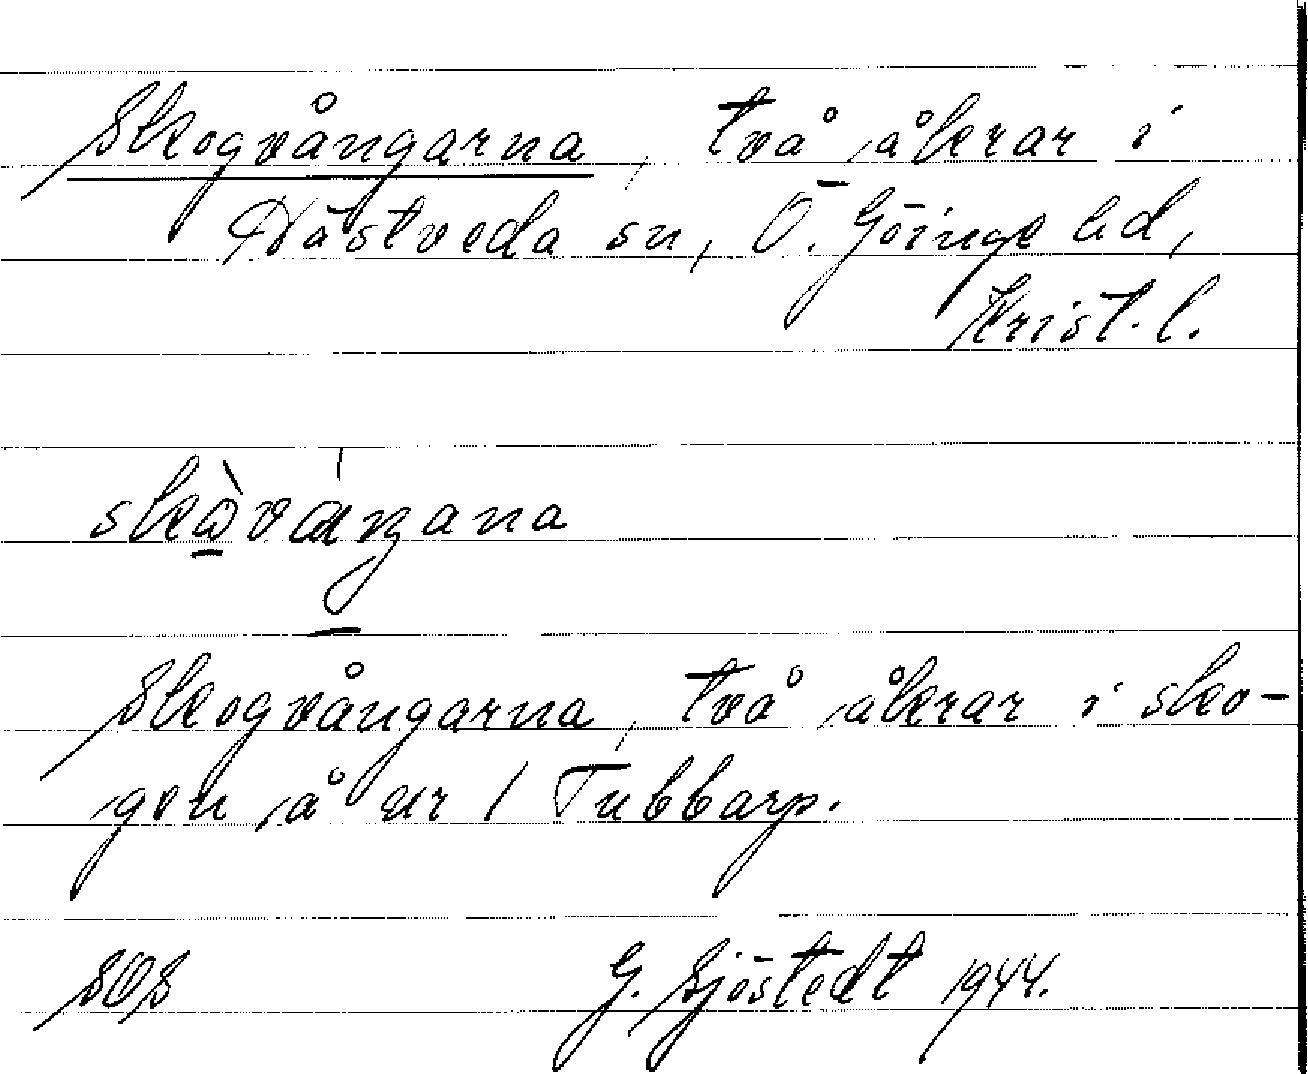 Skogvångarna, två åkrar i
Hästveda sn, Ö. Göinge hd,
Krist. l.
Skogvångarna, två åkrar i sko-
gen å nr 1 Tubbarp.
SOS G. Sjöstedt 1944.